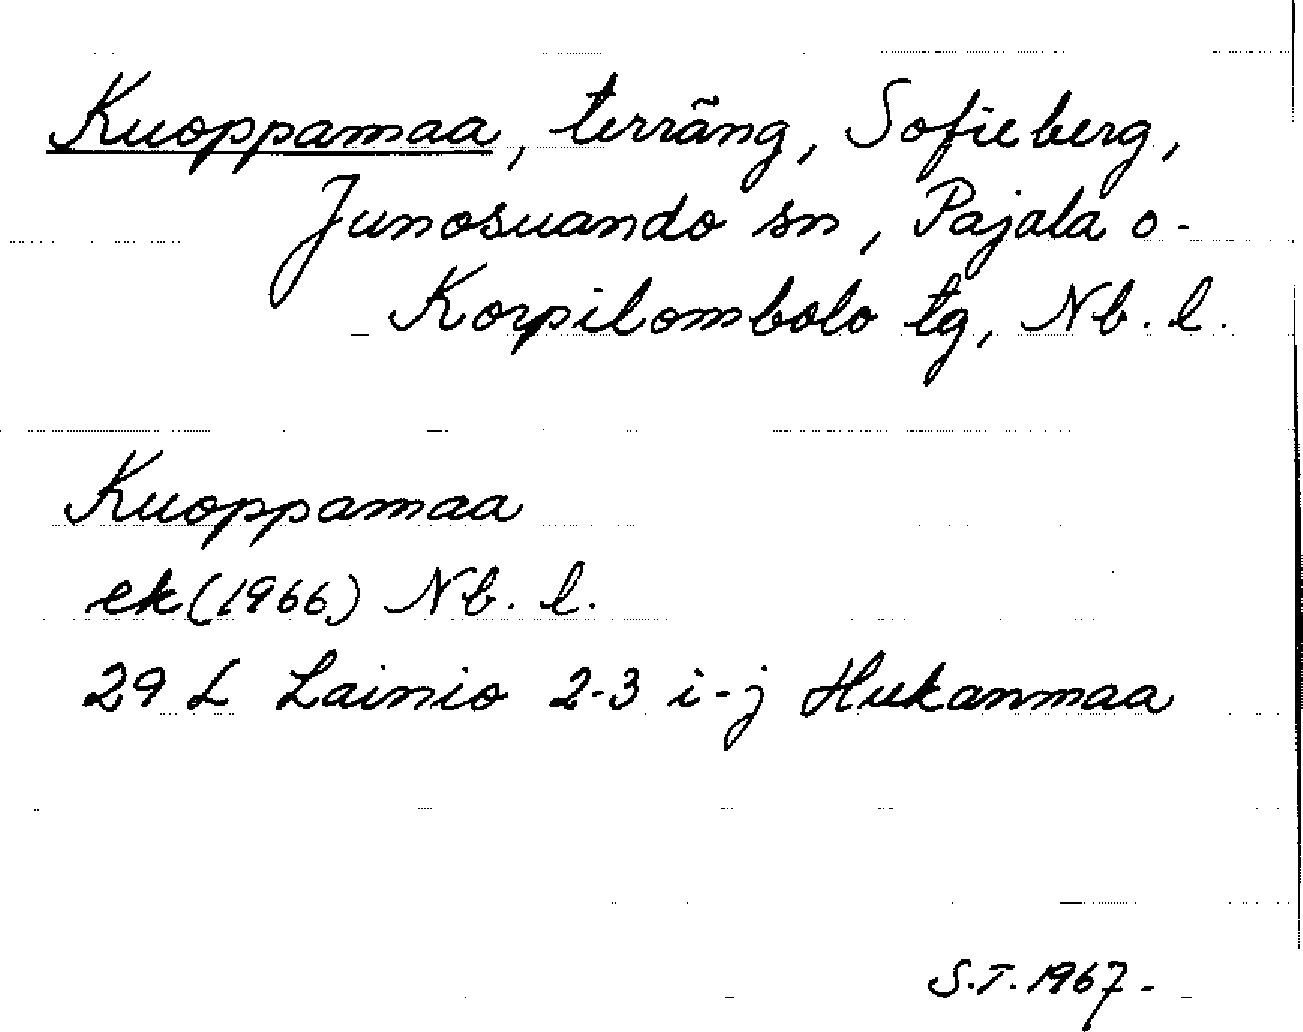 Kuoppamaa, terräng, Sofieberg,
Junosuando sn, Pajala o.
Korpilombolo tg, Nb. l.
Kuoppamaa
ek (1966) Nb. l.
29 L Lainio 2-3 i-j Hukanmaa
S.T. 1967.